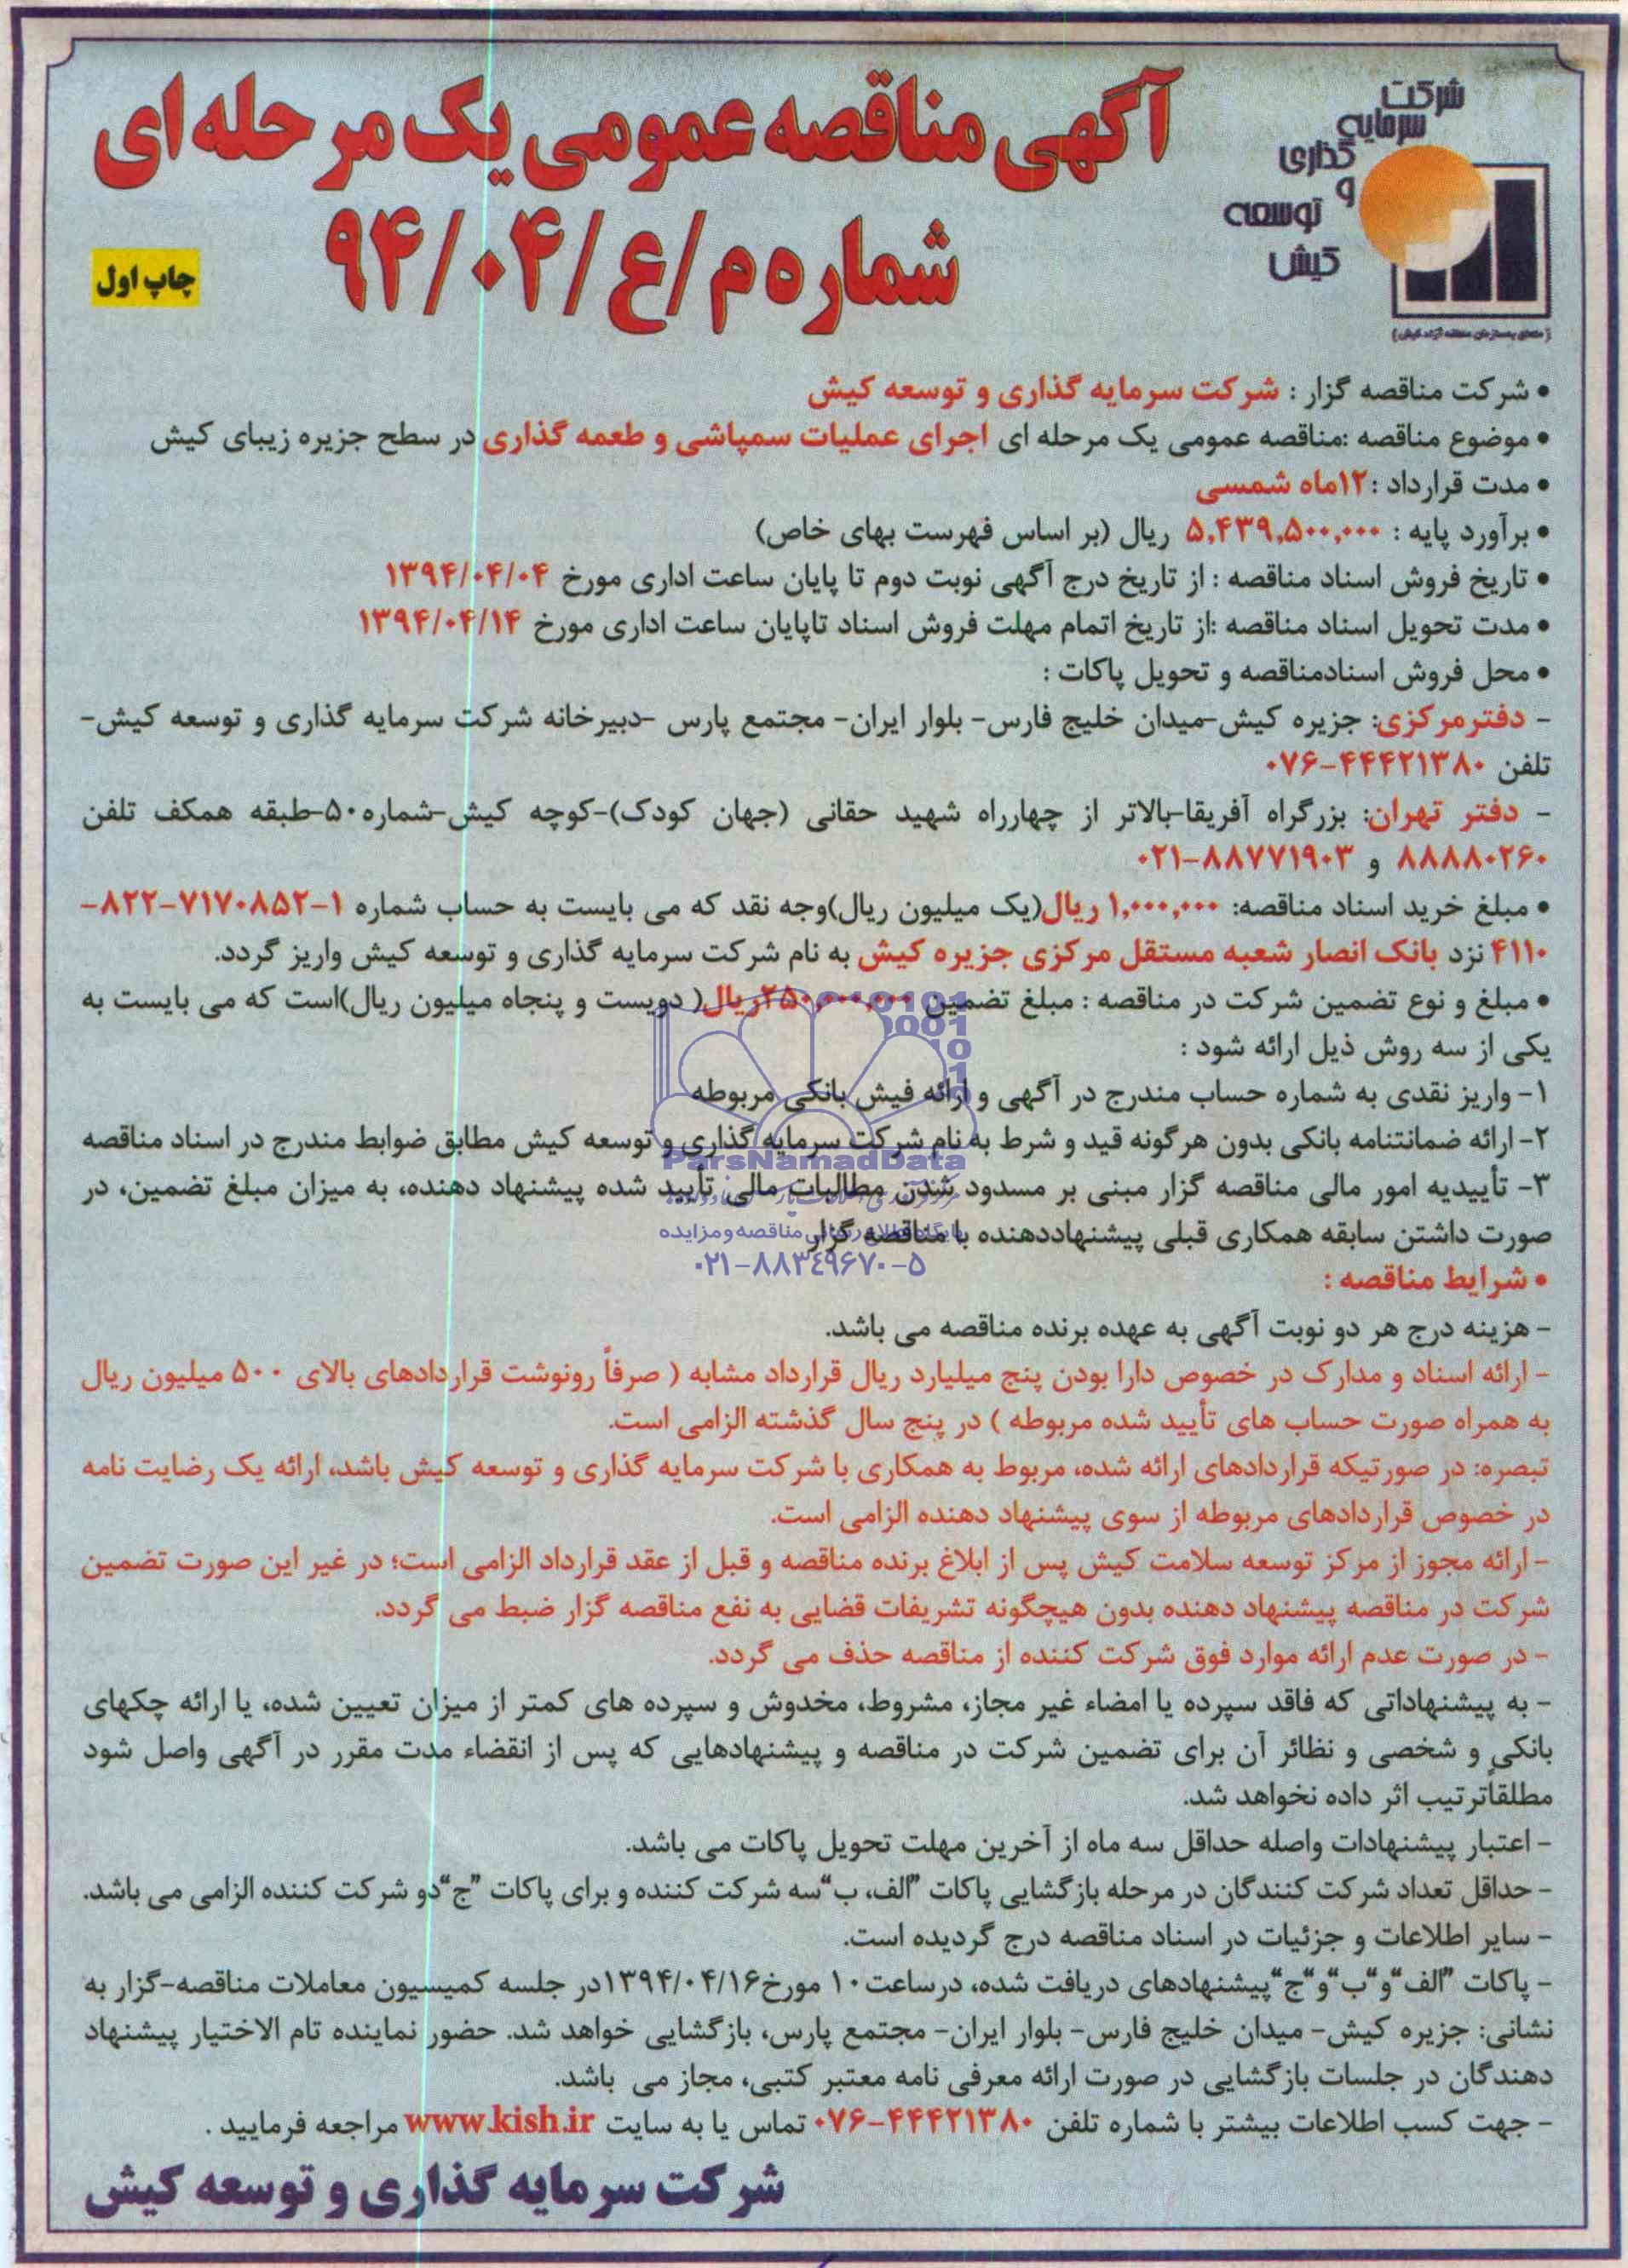 شرکت
سرمایه
گذاری
و
توسعه
کیش
آگهی مناقصه عمومی یک مرحله ای
شماره م/ع/۹۴/۰۴
چاپ اول
• شرکت مناقصه گزار : شرکت سرمایه گذاری و توسعه کیش
• موضوع مناقصه :مناقصه عمومی یک مرحله ای اجرای عملیات سمپاشی و طعمه گذاری در سطح جزیره زیبای کیش
• مدت قرارداد :۱۲ماه شمسی
• برآورد پایه : ۵,۴۳۹,۵۰۰,۰۰۰ ریال (بر اساس فهرست بهای خاص)
• تاریخ فروش اسناد مناقصه : از تاریخ درج آگهی نوبت دوم تا پایان ساعت اداری مورخ ۱۳۹۴/۰۴/۰۴
• مدت تحویل اسناد مناقصه :از تاریخ اتمام مهلت فروش اسناد تاپایان ساعت اداری مورخ ۱۳۹۴/۰۴/۱۴
• محل فروش اسنادمناقصه و تحویل پاکات :
- دفترمرکزی: جزیره کیش-میدان خلیج فارس- بلوار ایران- مجتمع پارس -دبیرخانه شرکت سرمایه گذاری و توسعه کیش-
تلفن ۰۷۶-۴۴۴۲۱۳۸۰
- دفتر تهران: بزرگراه آفریقا-بالاتر از چهارراه شهید حقانی (جهان کودک)-کوچه کیش-شماره۵۰-طبقه همکف تلفن
۸۸۸۸۰۲۶۰ و ۰۲۱-۸۸۷۷۱۹۰۳
• مبلغ خرید اسناد مناقصه: ۱,۰۰۰,۰۰۰ ریال(یک میلیون ریال)وجه نقد که می بایست به حساب شماره ۱-۷۱۷۰۸۵۲-۸۲۲-
۴۱۱۰ نزد بانک انصار شعبه مستقل مرکزی جزیره کیش به نام شرکت سرمایه گذاری و توسعه کیش واریز گردد.
• مبلغ و نوع تضمین شرکت در مناقصه : مبلغ تضمین ۲۵۰,۰۰۰,۰۰۰ریال( دویست و پنجاه میلیون ریال)است که می بایست به
یکی از سه روش ذیل ارائه شود :
۱- واریز نقدی به شماره حساب مندرج در آگهی و ارائه فیش بانکی مربوطه
۲- ارائه ضمانتنامه بانکی بدون هرگونه قید و شرط به نام شرکت سرمایه گذاری و توسعه کیش مطابق ضوابط مندرج در اسناد مناقصه
ParsNamadData
۳- تأییدیه امور مالی مناقصه گزار مبنی بر مسدود شدن مطالبات مالی تأیید شده پیشنهاد دهنده، به میزان مبلغ تضمین، در
صورت داشتن سابقه همکاری قبلی پیشنهاددهنده با مناقصه گزار
پایگاه اطلاع رسانی مناقصه و مزایده
۰۲۱-۸۸۳۴۹۶۷۰-۵
• شرایط مناقصه :
- هزینه درج هر دو نوبت آگهی به عهده برنده مناقصه می باشد.
- ارائه اسناد و مدارک در خصوص دارا بودن پنج میلیارد ریال قرارداد مشابه ( صرفاً رونوشت قراردادهای بالای ۵۰۰ میلیون ریال
به همراه صورت حساب های تأیید شده مربوطه ) در پنج سال گذشته الزامی است.
تبصره: در صورتیکه قراردادهای ارائه شده، مربوط به همکاری با شرکت سرمایه گذاری و توسعه کیش باشد، ارائه یک رضایت نامه
در خصوص قراردادهای مربوطه از سوی پیشنهاد دهنده الزامی است.
- ارائه مجوز از مرکز توسعه سلامت کیش پس از ابلاغ برنده مناقصه و قبل از عقد قرارداد الزامی است؛ در غیر این صورت تضمین
شرکت در مناقصه پیشنهاد دهنده بدون هیچگونه تشریفات قضایی به نفع مناقصه گزار ضبط می گردد.
- در صورت عدم ارائه موارد فوق شرکت کننده از مناقصه حذف می گردد.
- به پیشنهاداتی که فاقد سپرده یا امضاء غیر مجاز، مشروط، مخدوش و سپرده های کمتر از میزان تعیین شده، یا ارائه چکهای
بانکی و شخصی و نظائر آن برای تضمین شرکت در مناقصه و پیشنهادهایی که پس از انقضاء مدت مقرر در آگهی واصل شود
مطلقاًترتیب اثر داده نخواهد شد.
- اعتبار پیشنهادات واصله حداقل سه ماه از آخرین مهلت تحویل پاکات می باشد.
- حداقل تعداد شرکت کنندگان در مرحله بازگشایی پاکات "الف، ب"سه شرکت کننده و برای پاکات "ج"دو شرکت کننده الزامی می باشد.
- سایر اطلاعات و جزئیات در اسناد مناقصه درج گردیده است.
- پاکات "الف"و"ب"و"ج"پیشنهادهای دریافت شده، درساعت۱۰ مورخ۱۳۹۴/۰۴/۱۶در جلسه کمیسیون معاملات مناقصه-گزار به
نشانی: جزیره کیش- میدان خلیج فارس- بلوار ایران- مجتمع پارس، بازگشایی خواهد شد. حضور نماینده تام الاختیار پیشنهاد
دهندگان در جلسات بازگشایی در صورت ارائه معرفی نامه معتبر کتبی، مجاز می باشد.
- جهت کسب اطلاعات بیشتر با شماره تلفن ۰۷۶-۴۴۴۲۱۳۸۰ تماس یا به سایت www.kish.ir مراجعه فرمایید .
شرکت سرمایه گذاری و توسعه کیش